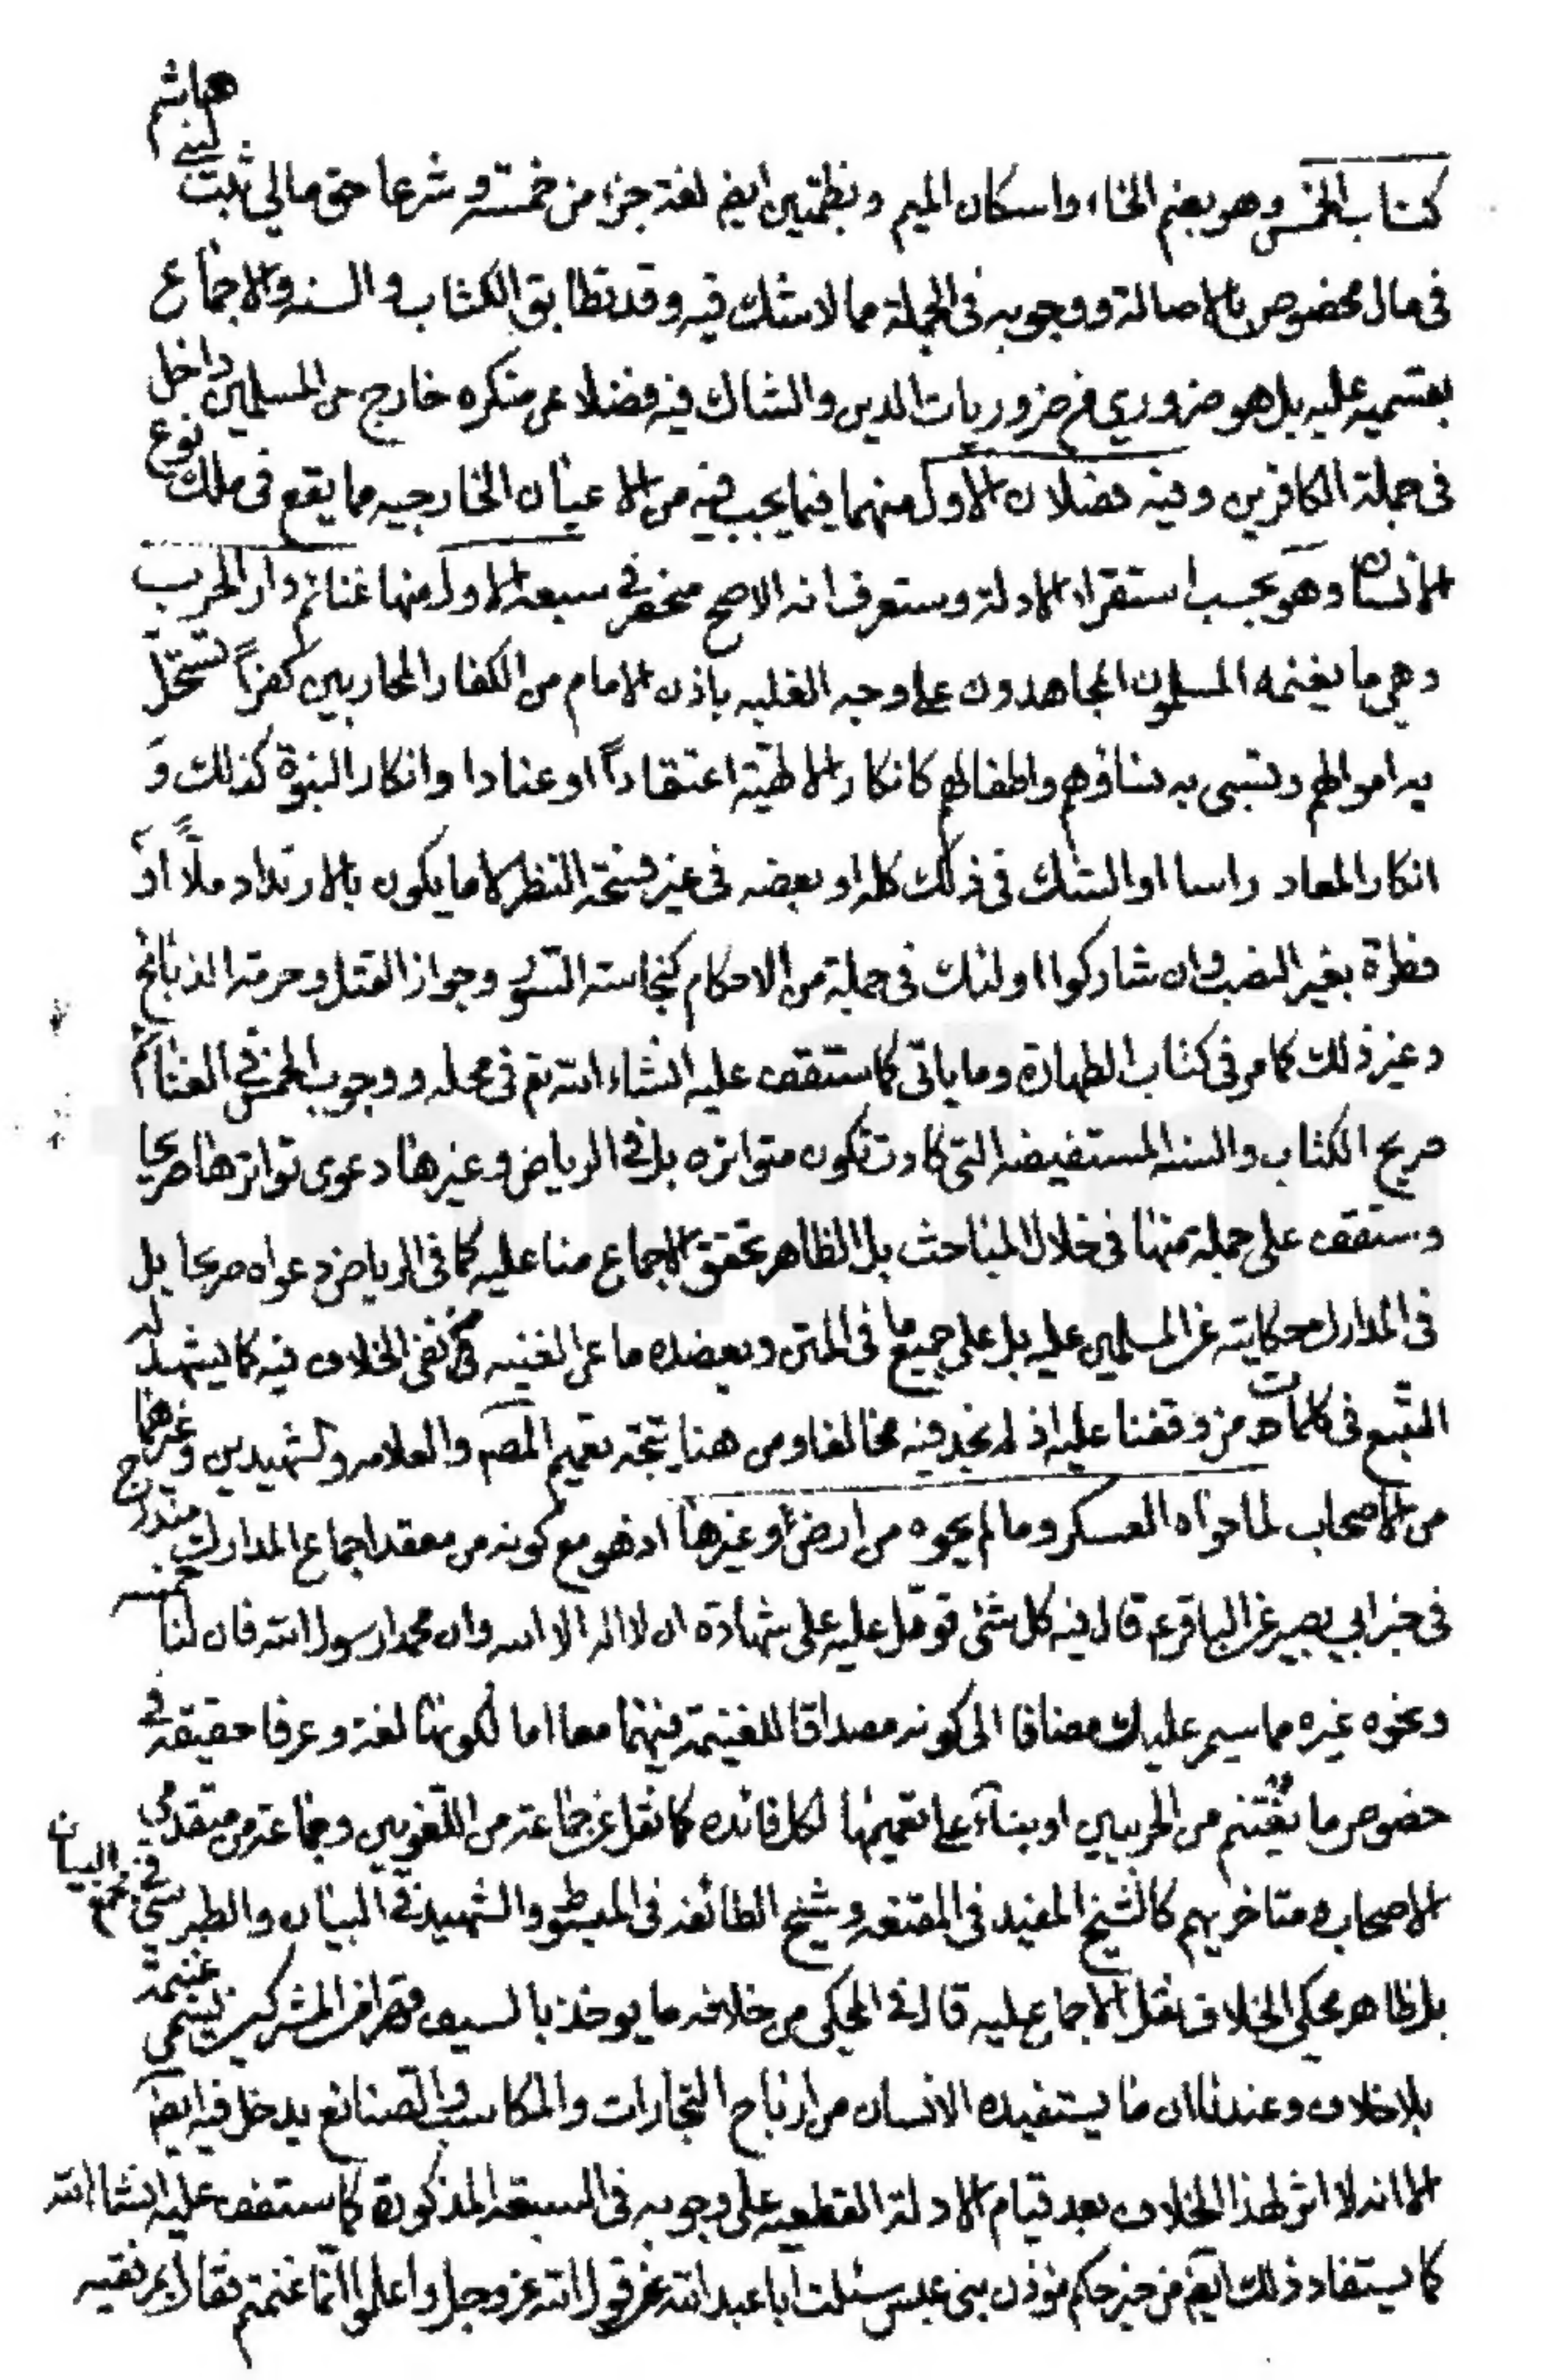 كتاب الخمس وهو بضم الخاء واسكان الميم وبضمتين ايض لغة جزء من خمسة وشرعا حق مالي ثبت لبني هاشم
في مال مخصوص بالاصالة ووجوبه في الجملة مما لا شك فيه وقد تطابق الكتاب والسنه والاجماع
بقسميه عليه بل هو ضروري من ضروريات الدين والشاك فيه فضلا عن منكره خارج عن المسلمين داخل
في جملة الكافرين وفيه فصلان الاول منهما فيما يجب فيه من الاعيان الخارجيه مما يقع في ملك نوع
الانسان وهو بحسب استقراء الادلة وستعرف انه الاصح منحصر في سبعة الاول منها غنائم دار الحرب
وهي ما يغنمه المسلمون المجاهدون على وجه الغلبه باذن الامام من الكفار المحاربين كفراً تستحل
به اموالهم وتسبى به نساؤهم واطفالهم كانكار الالهية اعتقاداً او عنادا وانكار النبوة كذلك و
انكار المعاد راسا او الشك في ذلك كله او بعضه في غير فسحة النظر لا ما يكون بالارتداد ملاً او
فطرة بغير النصب وان شاركوا اولئك في جملة من الاحكام كنجاسة السؤر وجواز القتل وحرمة الذبائح
وغير ذلك كما مر في كتاب الطهارة وما ياتي كما ستقف عليه انشاء الله تع في محله ووجوب الخمس في الغنائم
صريح الكتاب والسنه المستفيضه التي كادت تكون متواتره بل في الرياض وغيرها دعوى تواترها صريحا
وستقف على جملة منها في خلال المباحث بل الظاهر تحقق الاجماع منا عليه كما في الرياض دعواه صريحا بل
في المدارك حكايته عن المسلمين عليه بل على جميع ما في المتن ويعضده ما عن الغنيه من نفي الخلاف فيه كما يشهد له
التتبع في كلمات من وقفنا عليه اذ لم نجد فيه مخالفا ومن هنا يتجه تعميم المصم والعلامه والشهيدين وغيرهما
من الاصحاب لما حواه العسكر وما لم يحوه من ارض او غيرها اذ هو مع كونه من معقد اجماع المدارك مندرج
في خبر ابي بصير عن الباقر ع قال فيه كل شئ قوتل عليه على شهادة ان لا اله الا الله وان محمدا رسول الله فان لنا خمسه
ونحوه غيره مما سيمر عليك مضافا الى كونه مصداقا للغنيمة فيهما معا اما لكونها لغة وعرفا حقيقة في
خصوص ما يغتنم من الحربيين او بناءً على تعميمها لكل فائده كما نقل عن جماعة من اللغويين وجماعة من متقدمي
الاصحاب ومتاخريهم كالشيخ المفيد في المقنعه وشيخ الطائفه في المبسوط والشهيد في البيان والطبرسي في مجمع البيان
بل ظاهر محكي الخلاف نقل الاجماع عليه قال في المحكي من خلافه ما يوخذ بالسيف قهرا من المشركين يسمى غنيمة
بلا خلاف وعندنا ان ما يستفيده الانسان من ارباح التجارات والمكاسب والصنايع يدخل فيه ايض
الا انه لا اثر لهذا الخلاف بعد قيام الادلة القطعيه على وجوبه في السبعة المذكورة كما ستقف عليه انشا الله
كما يستفاد ذلك ايض من خبر حكيم مؤذن بني عبس سئلت ابا عبد الله عن قول الله عز وجل واعلموا انما غنمتم فقال بمرفقيه